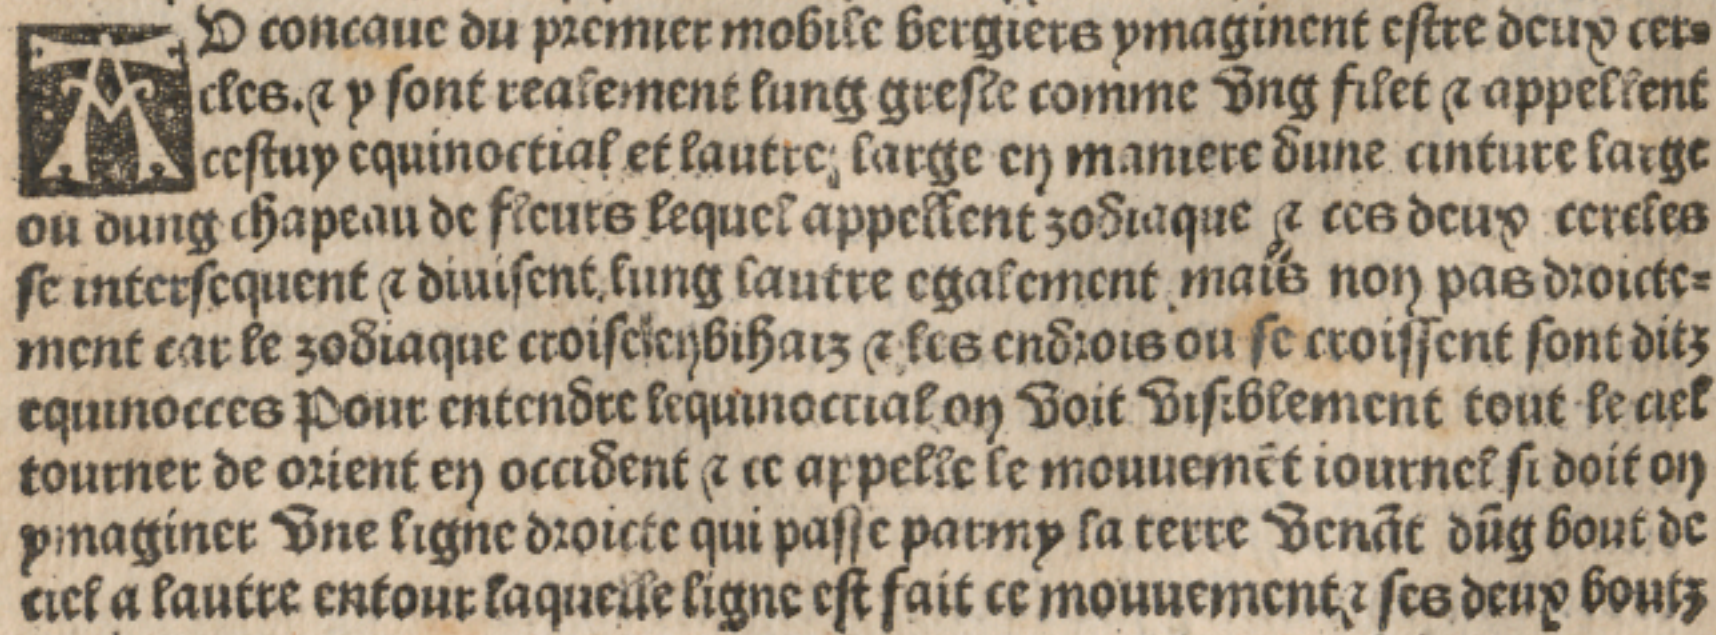 AU concaue du premier mobile bergiers ymaginent estre deux cer-
cles. ⁊ y sont realement lung gresle comme vng filet ⁊ appellent
cestuy equinoctial et lautre, large en maniere dune cinture large
ou dung chapeau de fleurs lequel appellent zodiaque ⁊ ces deux cercles
se intersequent ⁊ diuisent lung lautre egalement mais non pas droicte-
ment car le zodiaque croise en bihaiz ⁊ les endrois ou se croissent sont ditz
equinocces Pour entendre lequinoctial on voit visiblement tout le ciel
tourner de orient en occident ⁊ ce appelle le mouuemēt iournel si doit on
ymaginer vne ligne droicte qui passe parmy la terre venāt dūg bout de
ciel a lautre entour laquelle ligne est fait ce mouuement ⁊ ses deux boutz